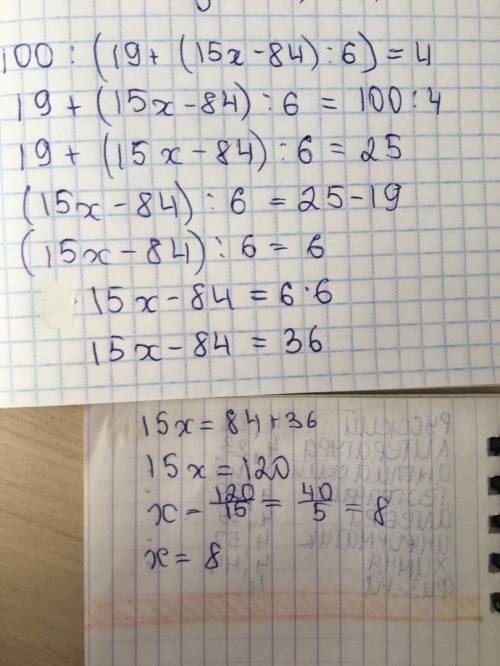 100 : (19 + (15x - 84) : 6) = 4
19 + (15x - 84) : 6 = 100 : 4
19 + (15x - 84) : 6 = 25
(15x - 84) : 6 = 25 - 19
(15x - 84) : 6 = 6
15x - 84 = 6 · 6
15x - 84 = 36
15x = 84 + 36
15x = 120
x - 120/15 = 40/5 = 8
x = 8